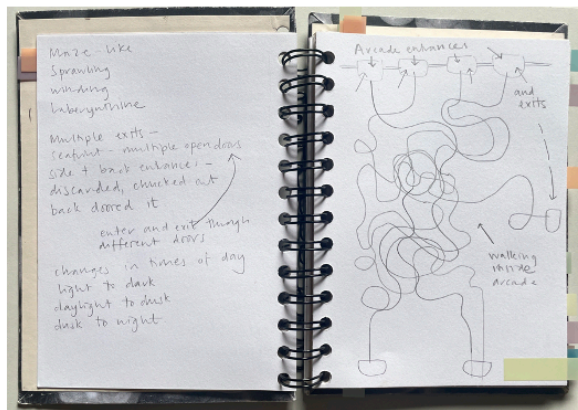 Maze-like
Sprawling
winding
Laberynthine
Multiple exits -
seafront - multiple open doors
side + back entrances -
discarded, chucked out
back doored it
enter and exit through
different doors
changes in times of day
light to dark
daylight to dusk
dusk to night
Arcade enhances
and
exits
walking
inside
arcade